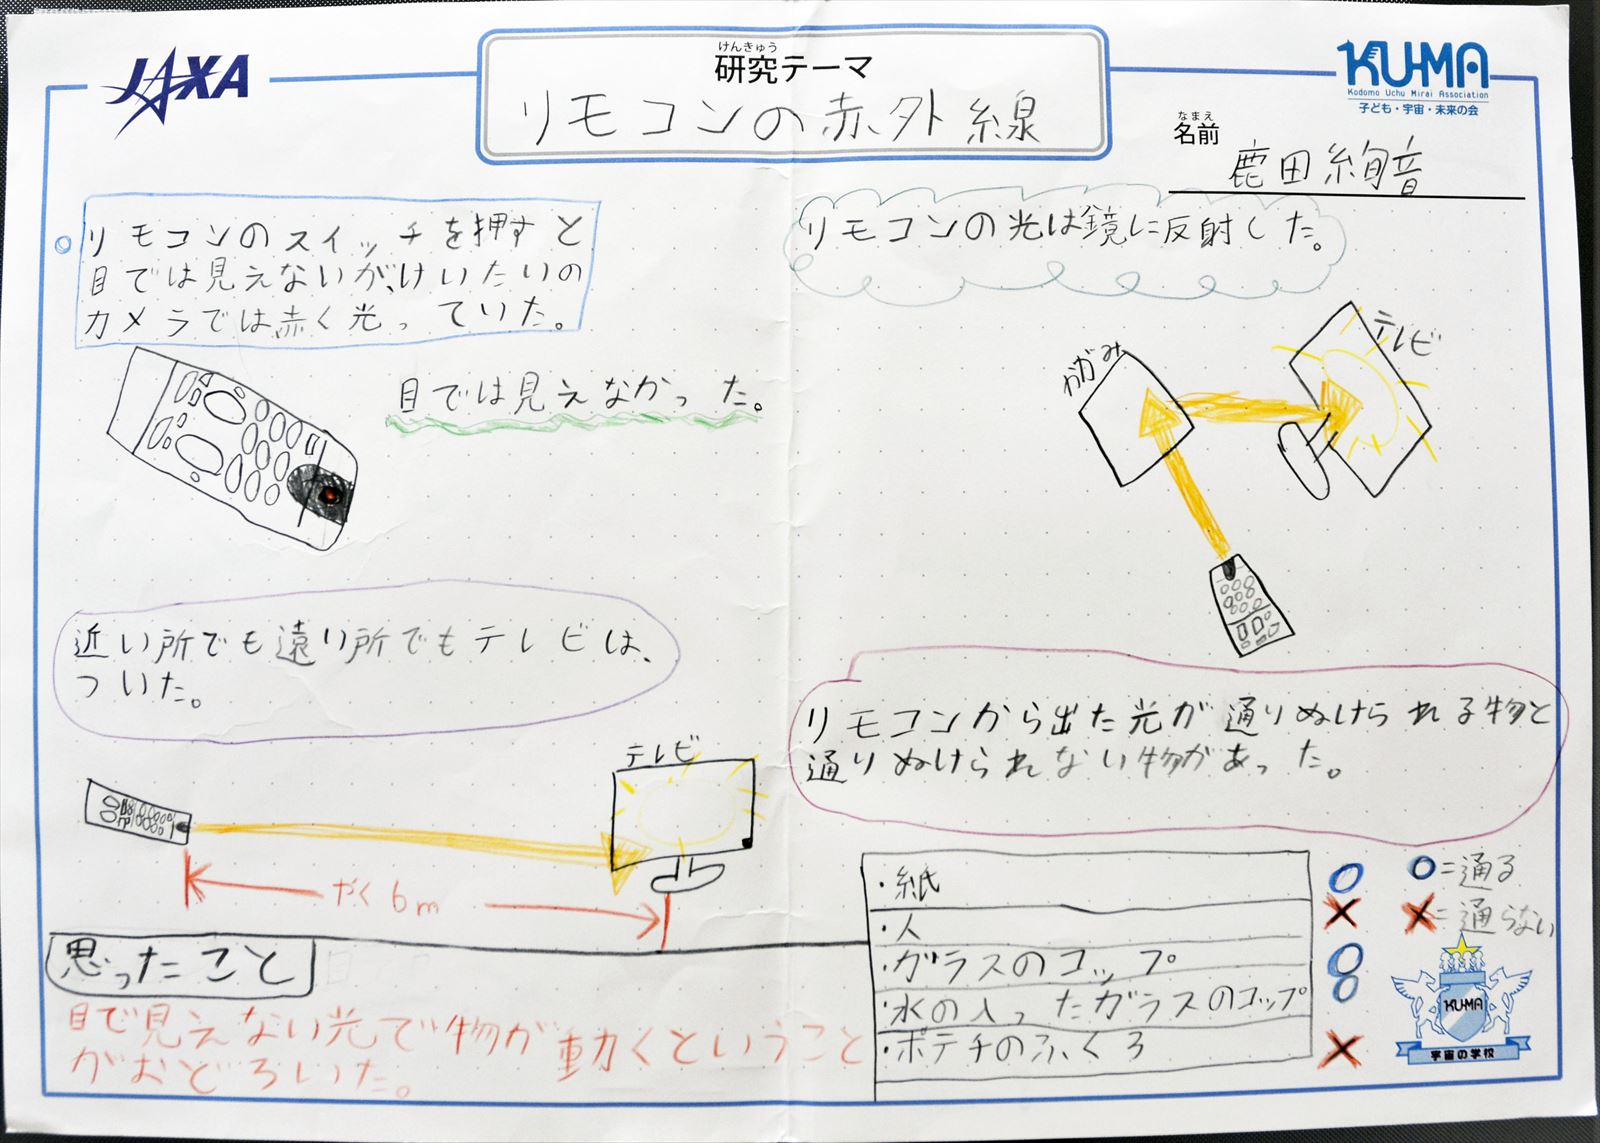 JAXA
けんきゅう
研究テーマ
リモコンの赤外線
KU-MA
Kodomo Uchu Mirai Association
子ども・宇宙・未来の会
なまえ
名前
鹿田絢音
リモコンのスイッチを押すと
目では見えないが、けいたいの
カメラでは赤く光っていた。
目では見えなかった。
近い所でも遠い所でもテレビは、
ついた。
テレビ
やく6m
リモコンの光は鏡に反射した。
かがみ
テレビ
リモコンから出た光が通りぬけられる物と
通りぬけられない物があった。
・紙 ○
・人 ×
・ガラスのコップ ○
・水の入ったガラスのコップ ○
・ポテチのふくろ ×
○=通る
×=通らない
思ったこと
目で見えない光で物が動くということ
がおどろいた。
KU-MA
宇宙の学校